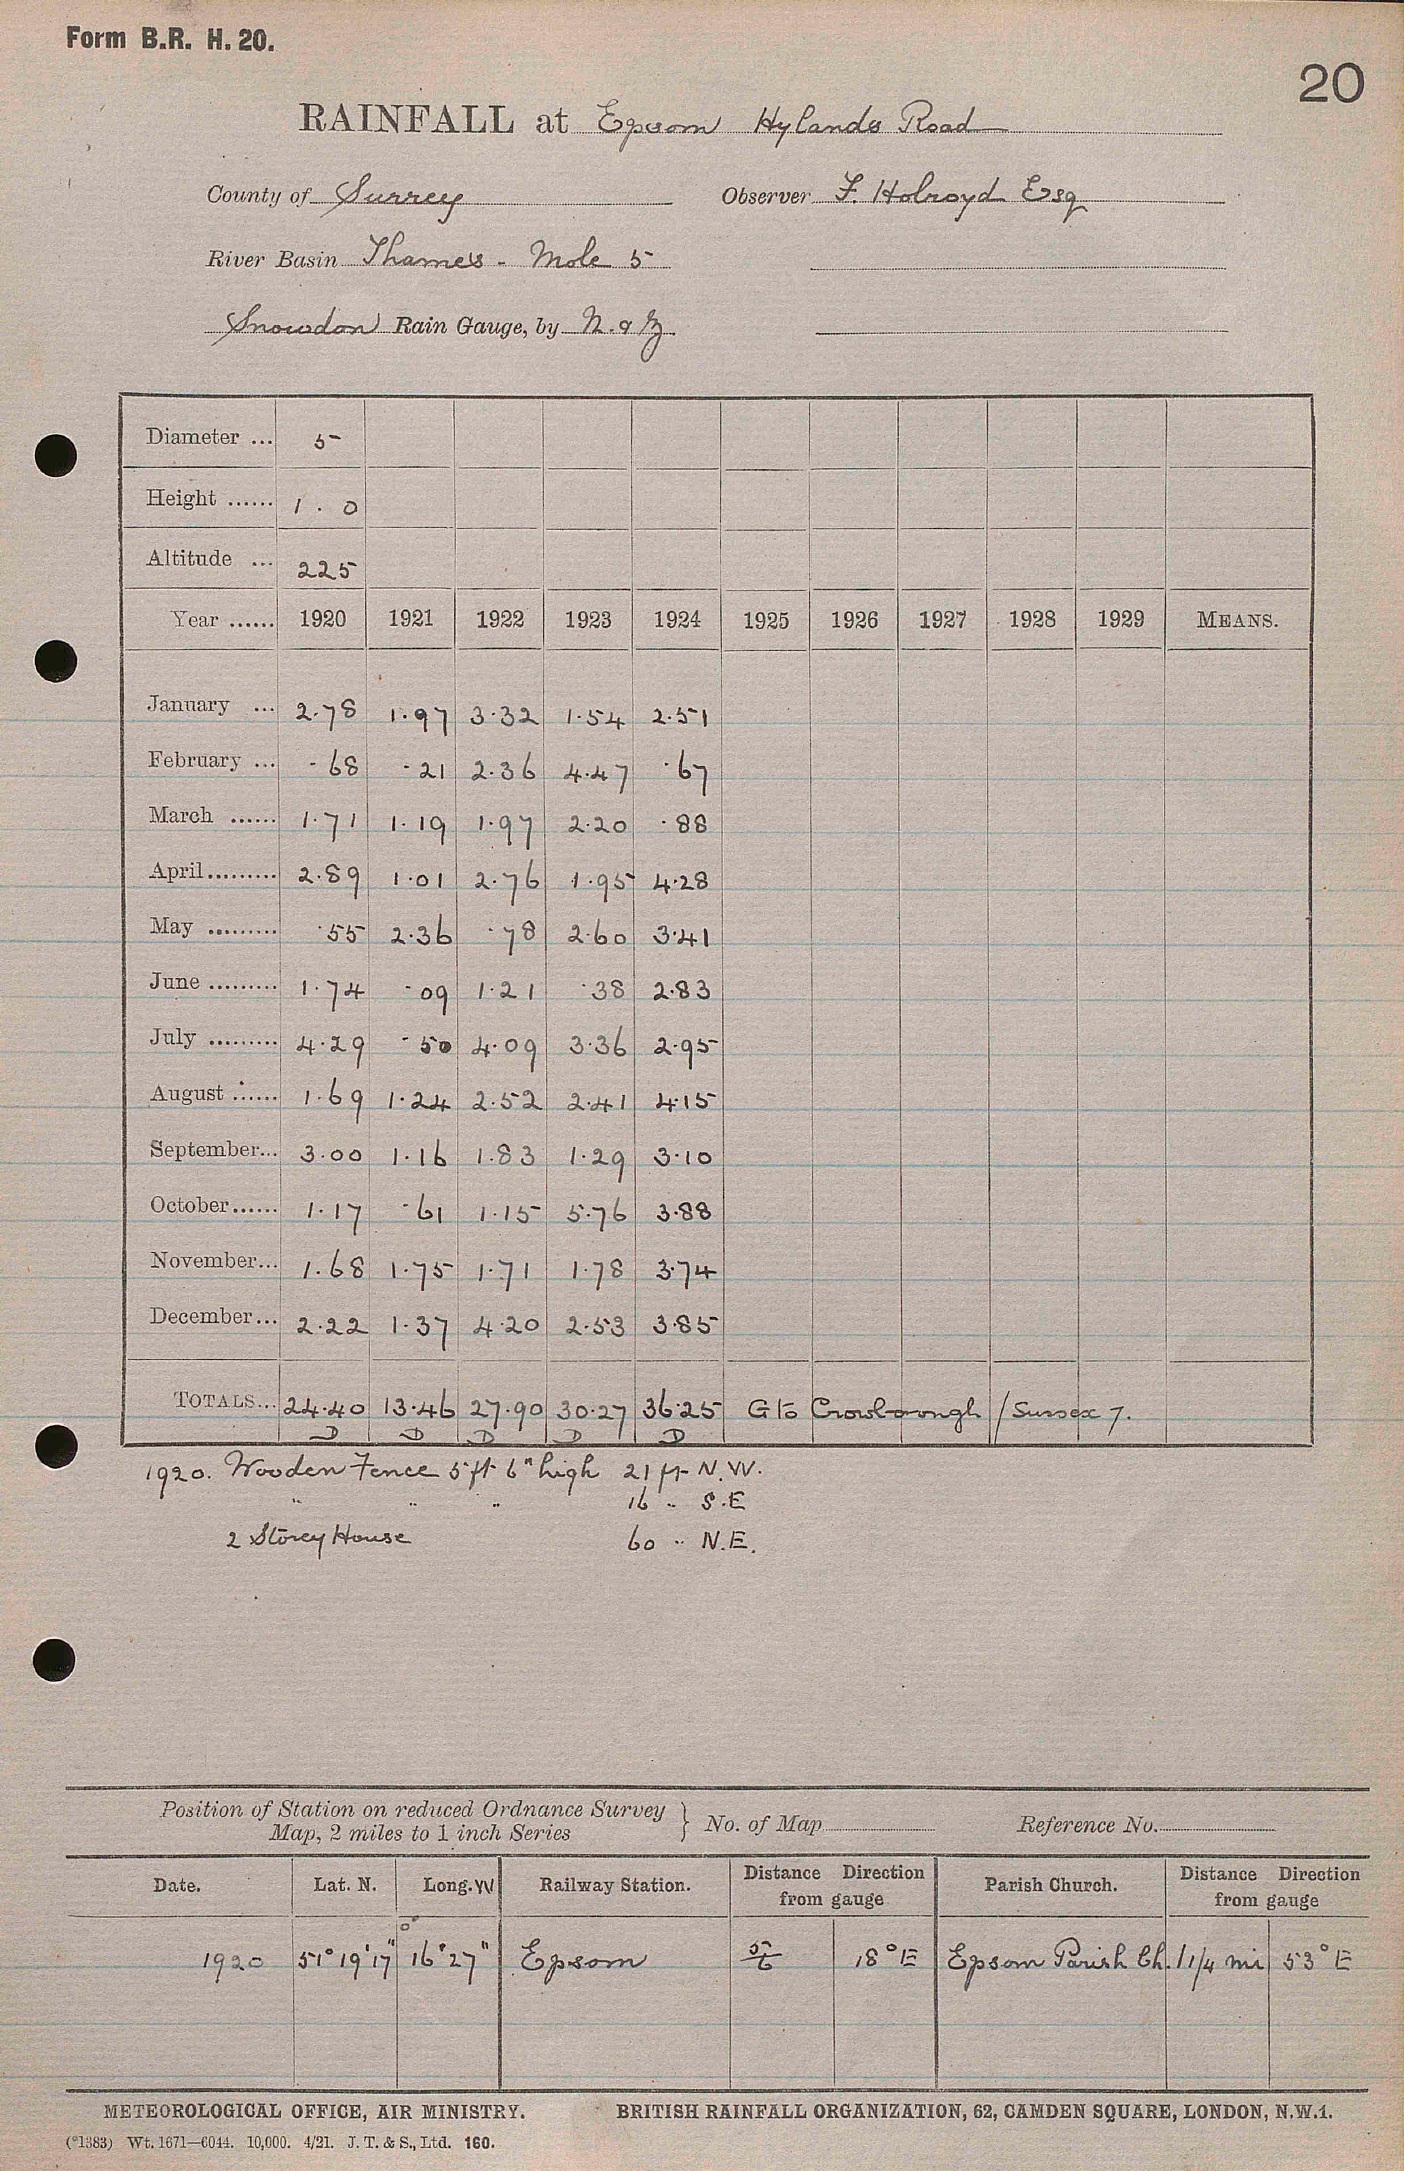 Form B.R. H. 20.
20
RAINFALL at Epsom Hylands Road
County of Surrey Observer F. Holroyd Esq
River Basin Thames - Mole 5
Snowdon Rain Gauge, by N. & Z
Diameter ... 5
Height ...... 1 . 0
Altitude ... 225
Year ...... 1920 1921 1922 1923 1924 1925 1926 1927 1928 1929 MEANS.
January ... 2.78 1.97 3.32 1.54 2.51
February ... .68 .21 2.36 4.47 .67
March ...... 1.71 1.19 1.97 2.20 .88
April ......... 2.89 1.01 2.76 1.95 4.28
May ......... .55 2.36 .78 2.60 3.41
June ......... 1.74 .09 1.21 .38 2.83
July ......... 4.29 .50 4.09 3.36 2.95
August ...... 1.69 1.24 2.52 2.41 4.15
September... 3.00 1.16 1.83 1.29 3.10
October...... 1.17 .61 1.15 5.76 3.88
November... 1.68 1.75 1.71 1.78 3.74
December... 2.22 1.37 4.20 2.53 3.85
TOTALS... 24.40 13.46 27.90 30.27 36.25 G to Crowborough / Sussex 7.
D D D D D
1920. Wooden Fence 5 ft 6" high 21 ft N.W.
" " " 16 " S.E
2 Storey House 60 " N.E.
Position of Station on reduced Ordnance Survey
Map, 2 miles to 1 inch Series } No. of Map Reference No.
Date. Lat. N. Long. W Railway Station. Distance Direction from gauge Parish Church. Distance Direction from gauge
1920 51° 19' 17" 0° 16' 27" Epsom 5/6 18° E Epsom Parish Ch. 1 1/4 mi 53° E
METEOROLOGICAL OFFICE, AIR MINISTRY. BRITISH RAINFALL ORGANIZATION, 62, CAMDEN SQUARE, LONDON, N.W.1.
(*1383) Wt. 1671—6044. 10,000. 4/21. J. T. & S., Ltd. 160.